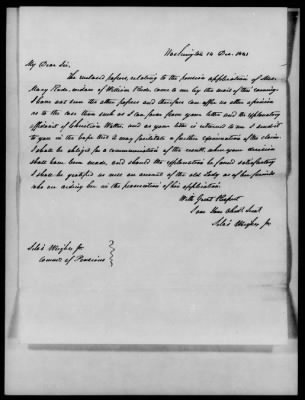 Washington 14 Dec. 1841
My Dear Sir,
The enclosed papers, relating to the pension application of Mrs.
Mary Rude, widow of William Rude, came to me by the mail of this evening.
I have not seen the other papers and therefore can offer no other opinion
as to the case than such as I can form from your letter and the explanatory
affidavit of Christian Walter, and as your letter is returned to me I send it
to you in the hope that it may facilitate a further examination of the claim.
I shall be obliged for a communication of the result, when your decision
shall have been made, and should the explanation be found satisfactory
I shall be gratified as well on account of the old Lady as of her friends
who are aiding her in the prosecution of his application.
With Great Respect
I am Your Obdt. Servt
Silas Wright Jr
Silas Wright Jr
Commr of Pensions